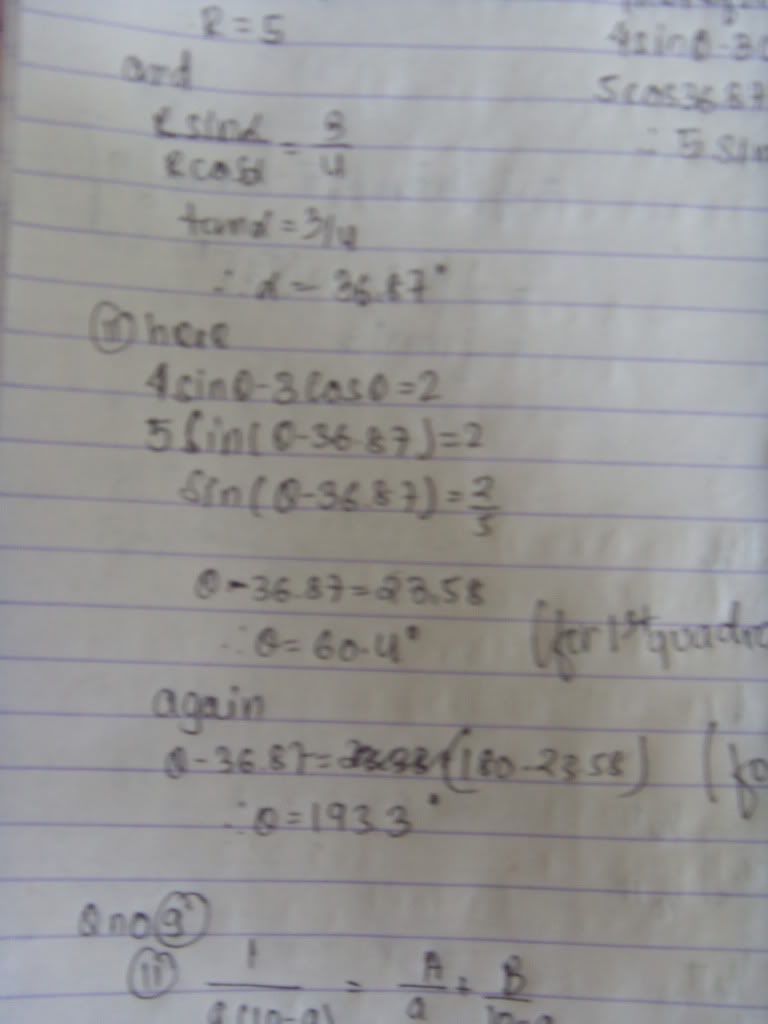 R = 5
and
R sinα / R cosα = 3/4
tanα = 3/4
∴ α = 36.87°
(ii) here
4 sinθ - 3 cosθ = 2
5 sin(θ - 36.87) = 2
sin(θ - 36.87) = 2/5
θ - 36.87 = 23.58
∴ θ = 60.4° (for 1st quadr
again
θ - 36.87 = (180 - 23.58) (fo
∴ θ = 193.3°
Q no (9)
(ii) 1 / a(10-a) = A/a + B/10-a
4 sinθ - 3c
5 cos 36.87
∴ 5 sin